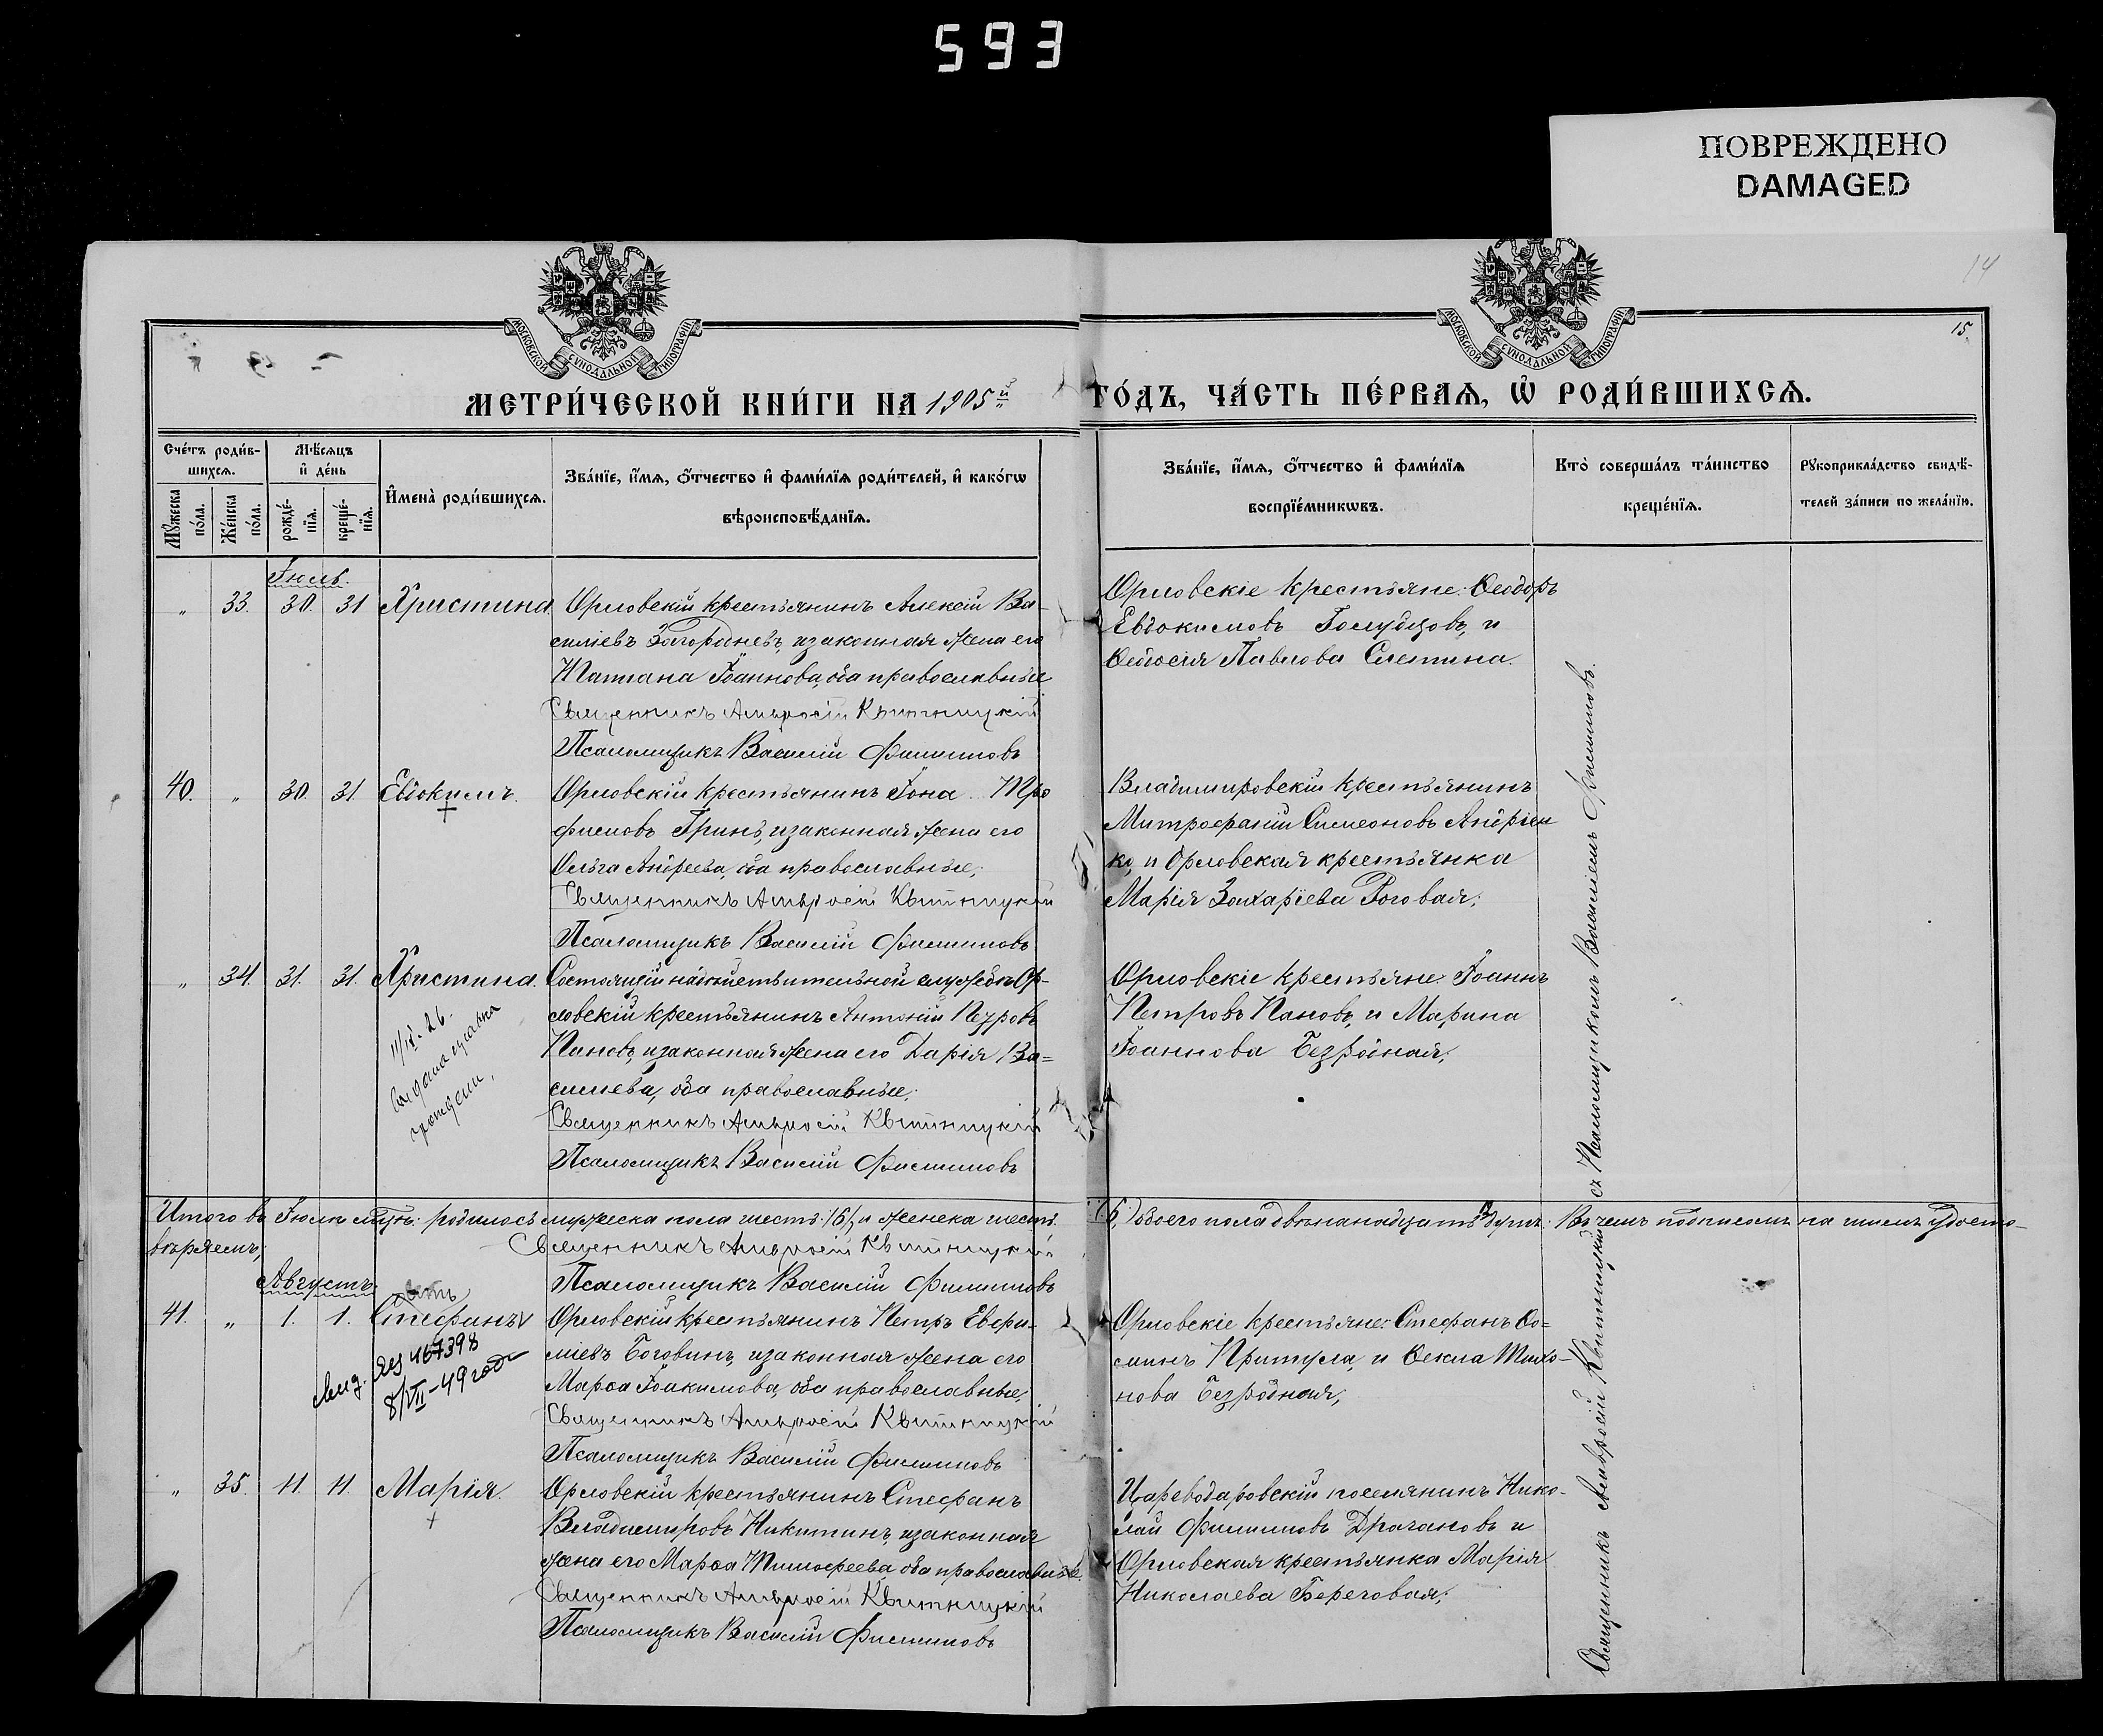 593
ПОВРЕЖДЕНО
DAMAGED
14
15
МОСКОВСКОЙ СѴНОДАЛЬНОЙ ТИПОГРАФІИ
МОСКОВСКОЙ СѴНОДАЛЬНОЙ ТИПОГРАФІИ
МЕТРИ́ЧЕСКОЙ КНИ́ГИ НА 1905й ГО́ДЪ, ЧА́СТЬ ПЕ́РВАѦ, Ѡ҆ РОДИ́ВШИХСѦ.
Сче́тъ роди́в-
шихсѧ.
Мꙋ́жеска по́ла.
Же́нска по́ла.
Мѣ́сѧцъ
и҆ де́нь
рожде́-
нїѧ.
креще́-
нїѧ.
И҆мена̀ роди́вшихсѧ.
Зва́нїе, и҆́мѧ, ѻ҆́тчество и҆ фами́лїѧ роди́телей, и҆ како́гѡ
вѣроисповѣ́данїѧ.
Зва́нїе, и҆́мѧ, ѻ҆́тчество и҆ фами́лїѧ
воспрїе́мникѡвъ.
Кто̀ соверша́лъ та́инство
креще́нїѧ.
Рꙋкоприкла́дство свидѣ́-
телей за́писи по жела́нїю.
Іюль.
„ 33. 30. 31 Христина. Орловскій крестьянинъ Алексій Ва-
силіевъ Загородневъ, и законная жена его
Татіана Іоаннова, оба православные
Священникъ Амвросій Квитницкій
Псаломщикъ Василій Филиповъ
Орловскіе крестьяне: Ѳеодоръ
Евдокимовъ Голубцовъ, и
Ѳеодосія Павлова Слетина.
40. „ 30. 31. Евдокимъ. Орловскій крестьянинъ Іона Тро
фимовъ Гринь, и законная жена его
Ольга Андреева, оба православные;
Священникъ Амвросій Квитницкій
Псаломщикъ Василій Филиповъ
Владимировскій крестьянинъ
Митрофаній Симеоновъ Андріен
ко, и Орловская крестьянка
Марія Захаріева Роговая;
„ 34. 31. 31. Христина. Состоящій на дѣйствительной службѣ Ор-
ловскій крестьянинъ Антоній Петровъ
Пановъ, и законная жена его Дарія Ва=
силіева, оба православные;
Священникъ Амвросій Квитницкій
Псаломщикъ Василій Филиповъ
26.
Выдана справка
Орловскіе крестьяне: Іоаннъ
Петровъ Пановъ, и Марина
Іоаннова Безродная;
Итого въ Іюлѣ мцѣ: родилось мужеска пола шесть /6/, и женска шесть /6/, обоего пола двѣнанадцать душъ. Въ чемъ подписомъ на симъ удосто-
вѣряемъ;
Священникъ Амвросій Квитницкій
Псаломщикъ Василій Филиповъ
Августъ.
41. „ 1. 1. Стефанъ Орловскій крестьянинъ Петръ Евфи-
міевъ Боговинъ, и законная жена его
Марѳа Іоакимова, оба православные;
Священникъ Амвросій Квитницкій
Псаломщикъ Василій Филиповъ
467398
8/VII-49 года
Орловскіе крестьяне: Стефанъ Ѳо=
минъ Притула, и Ѳекла Тихо-
нова Безродная;
„ 35. 11. 11. Марія. Орловскій крестьянинъ Стефанъ
Владимировъ Никитинъ, и законная
жена его Марѳа Тимофеева, оба православные.
Священникъ Амвросій Квитницкій
Псаломщикъ Василій Филиповъ
Цареводаровскій поселянинъ Нико-
лай Филиповъ Драгановъ и
Орловская крестьянка Марія
Николаева Береговая;
Священникъ Амвросій Квитницкій съ Псаломщикомъ Василіемъ Филиповъ.